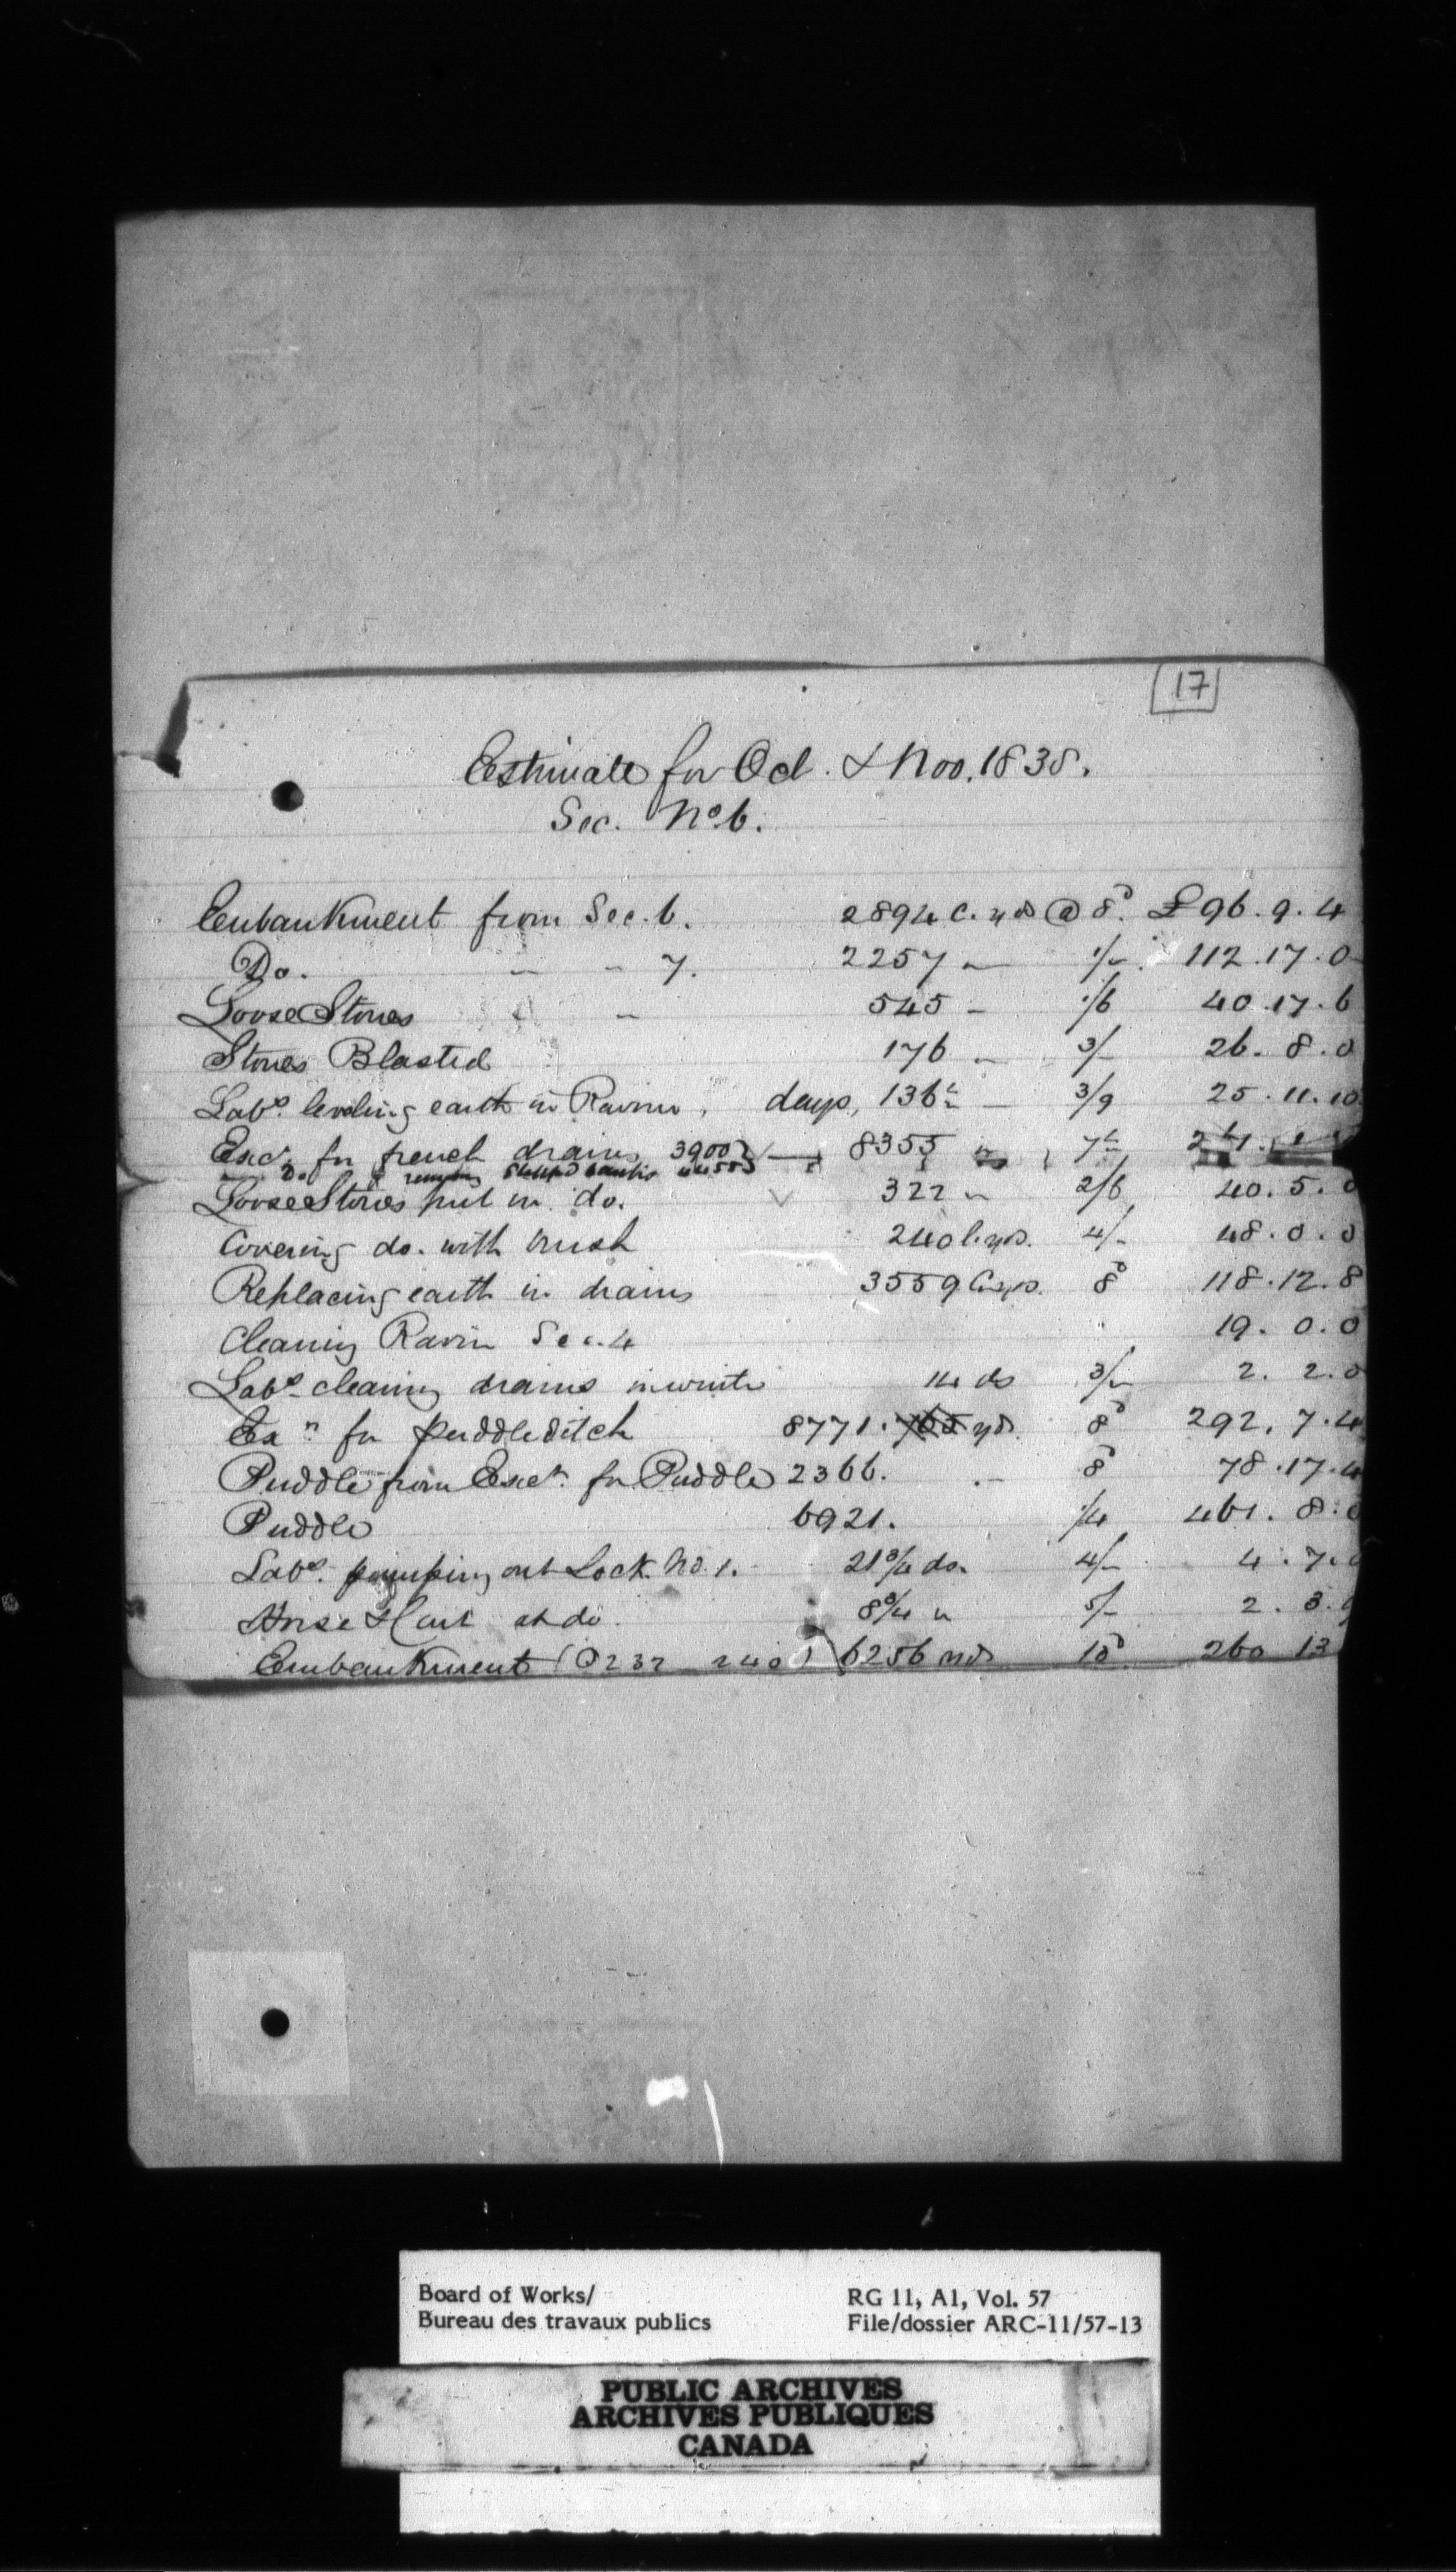 17
Estimate for Oct. & Nov. 1838.
Sec. No. 6.
Embankment from Sec. 6. 2894 C. yds @ 8d. £96. 9. 4
Do. " " 7. 2257 " 1/- 112. 17. 0
Loose Stones " 545 " 1/6 40. 17. 6
Stones Blasted 176 " 3/- 26. 8. 0
Labs. leveling earth in Ravine, days, 136 3/9 25. 11. 10
Excn. for french drains 3900 8355 " 7
Do 4455
Loose Stones put in do. 322 " 2/6 40. 5. 0
Covering do. with brush 240 l. yds. 4/- 48. 0. 0
Replacing earth in drains 3559 C. yds. 8d 118. 12. 8
Cleaning Ravin Sec. 4 19. 0. 0
Labs. cleaning drains in winter 14 ds 3/- 2. 2. 0
Exn. for puddle ditch 8771. yds. 8d 292. 7. 4
Puddle from Excn. for Puddle 2366. - 8d 78. 17. 4
Puddle 6921. 1/4 461. 8. 0
Labs. pumping out Lock No. 1. 21 3/4 do. 4/- 4. 7. 0
Horse & Cart at do. 8 3/4 " 5/- 2. 3. 9
Embankment (O 232 240) 6256 yds 10d 260 13
Board of Works/
Bureau des travaux publics
RG 11, A1, Vol. 57
File/dossier ARC-11/57-13
PUBLIC ARCHIVES
ARCHIVES PUBLIQUES
CANADA